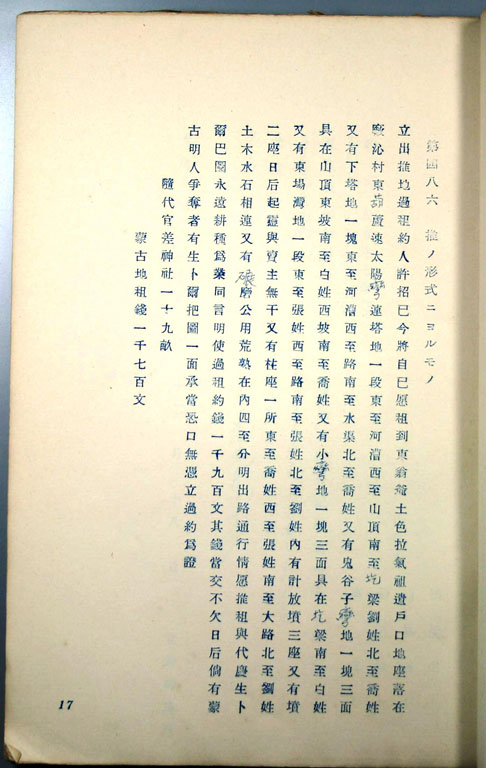 第四八六 推ノ形式ニヨルモノ
立出推地過租約人許招巳今將自巳愿租到東翁營土色拉氣祖遺戶口地座落在
廠沁村東葫蘆速太陽灣蓮塔地一段東至河漕西至山頂南至圪梁劉姓北至喬姓
又有下塔地一塊東至河漕西至路南至水渠北至喬姓又有鬼谷子灣地一塊三面
具在山頂東坡南至白姓西坡南至喬姓又有小灣地一塊三面具在圪梁南至白姓
又有東場灣地一段東至張姓西至路南至張姓北至劉姓內有計放墳三座又有墳
二座日后起靈與賣主無干又有柱座一所東至喬姓西至張姓南至大路北至劉姓
土木水石相連又有碾磨公用荒熟在內四至分明出路通行情愿推租與代慶生卜
爾巴圖永遠耕種爲業同言明使過租約錢一千九百文其錢當交不欠日后倘有蒙
古明人爭奪者有生卜爾把圖一面承當恐口無憑立過約爲證
隨代官差神社一十九畝
蒙古地租錢一千七百文
17